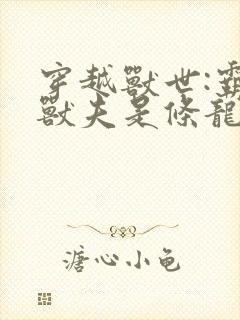 穿越獸世:霸
獸夫是條龍
溏心小龟